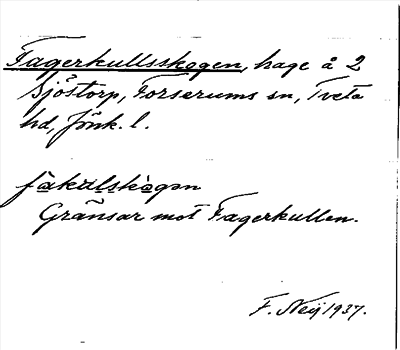 Fagerkullsskogen, hage å 2
Sjöstorp, Forserums sn, Tveta
hd, Jönk. l.
fàkúlskògən
Gränsar mot Fagerkullen.
F. Neij 1937.